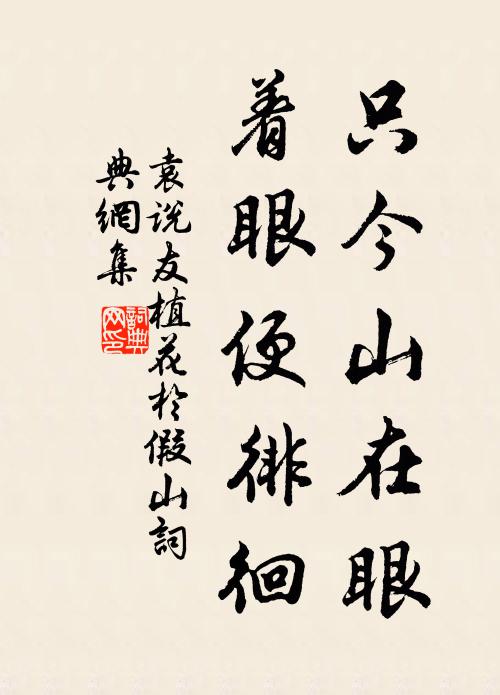 只今山在眼
着眼便徘徊
袁说友植花於假山詞
典網集
詞典
网印